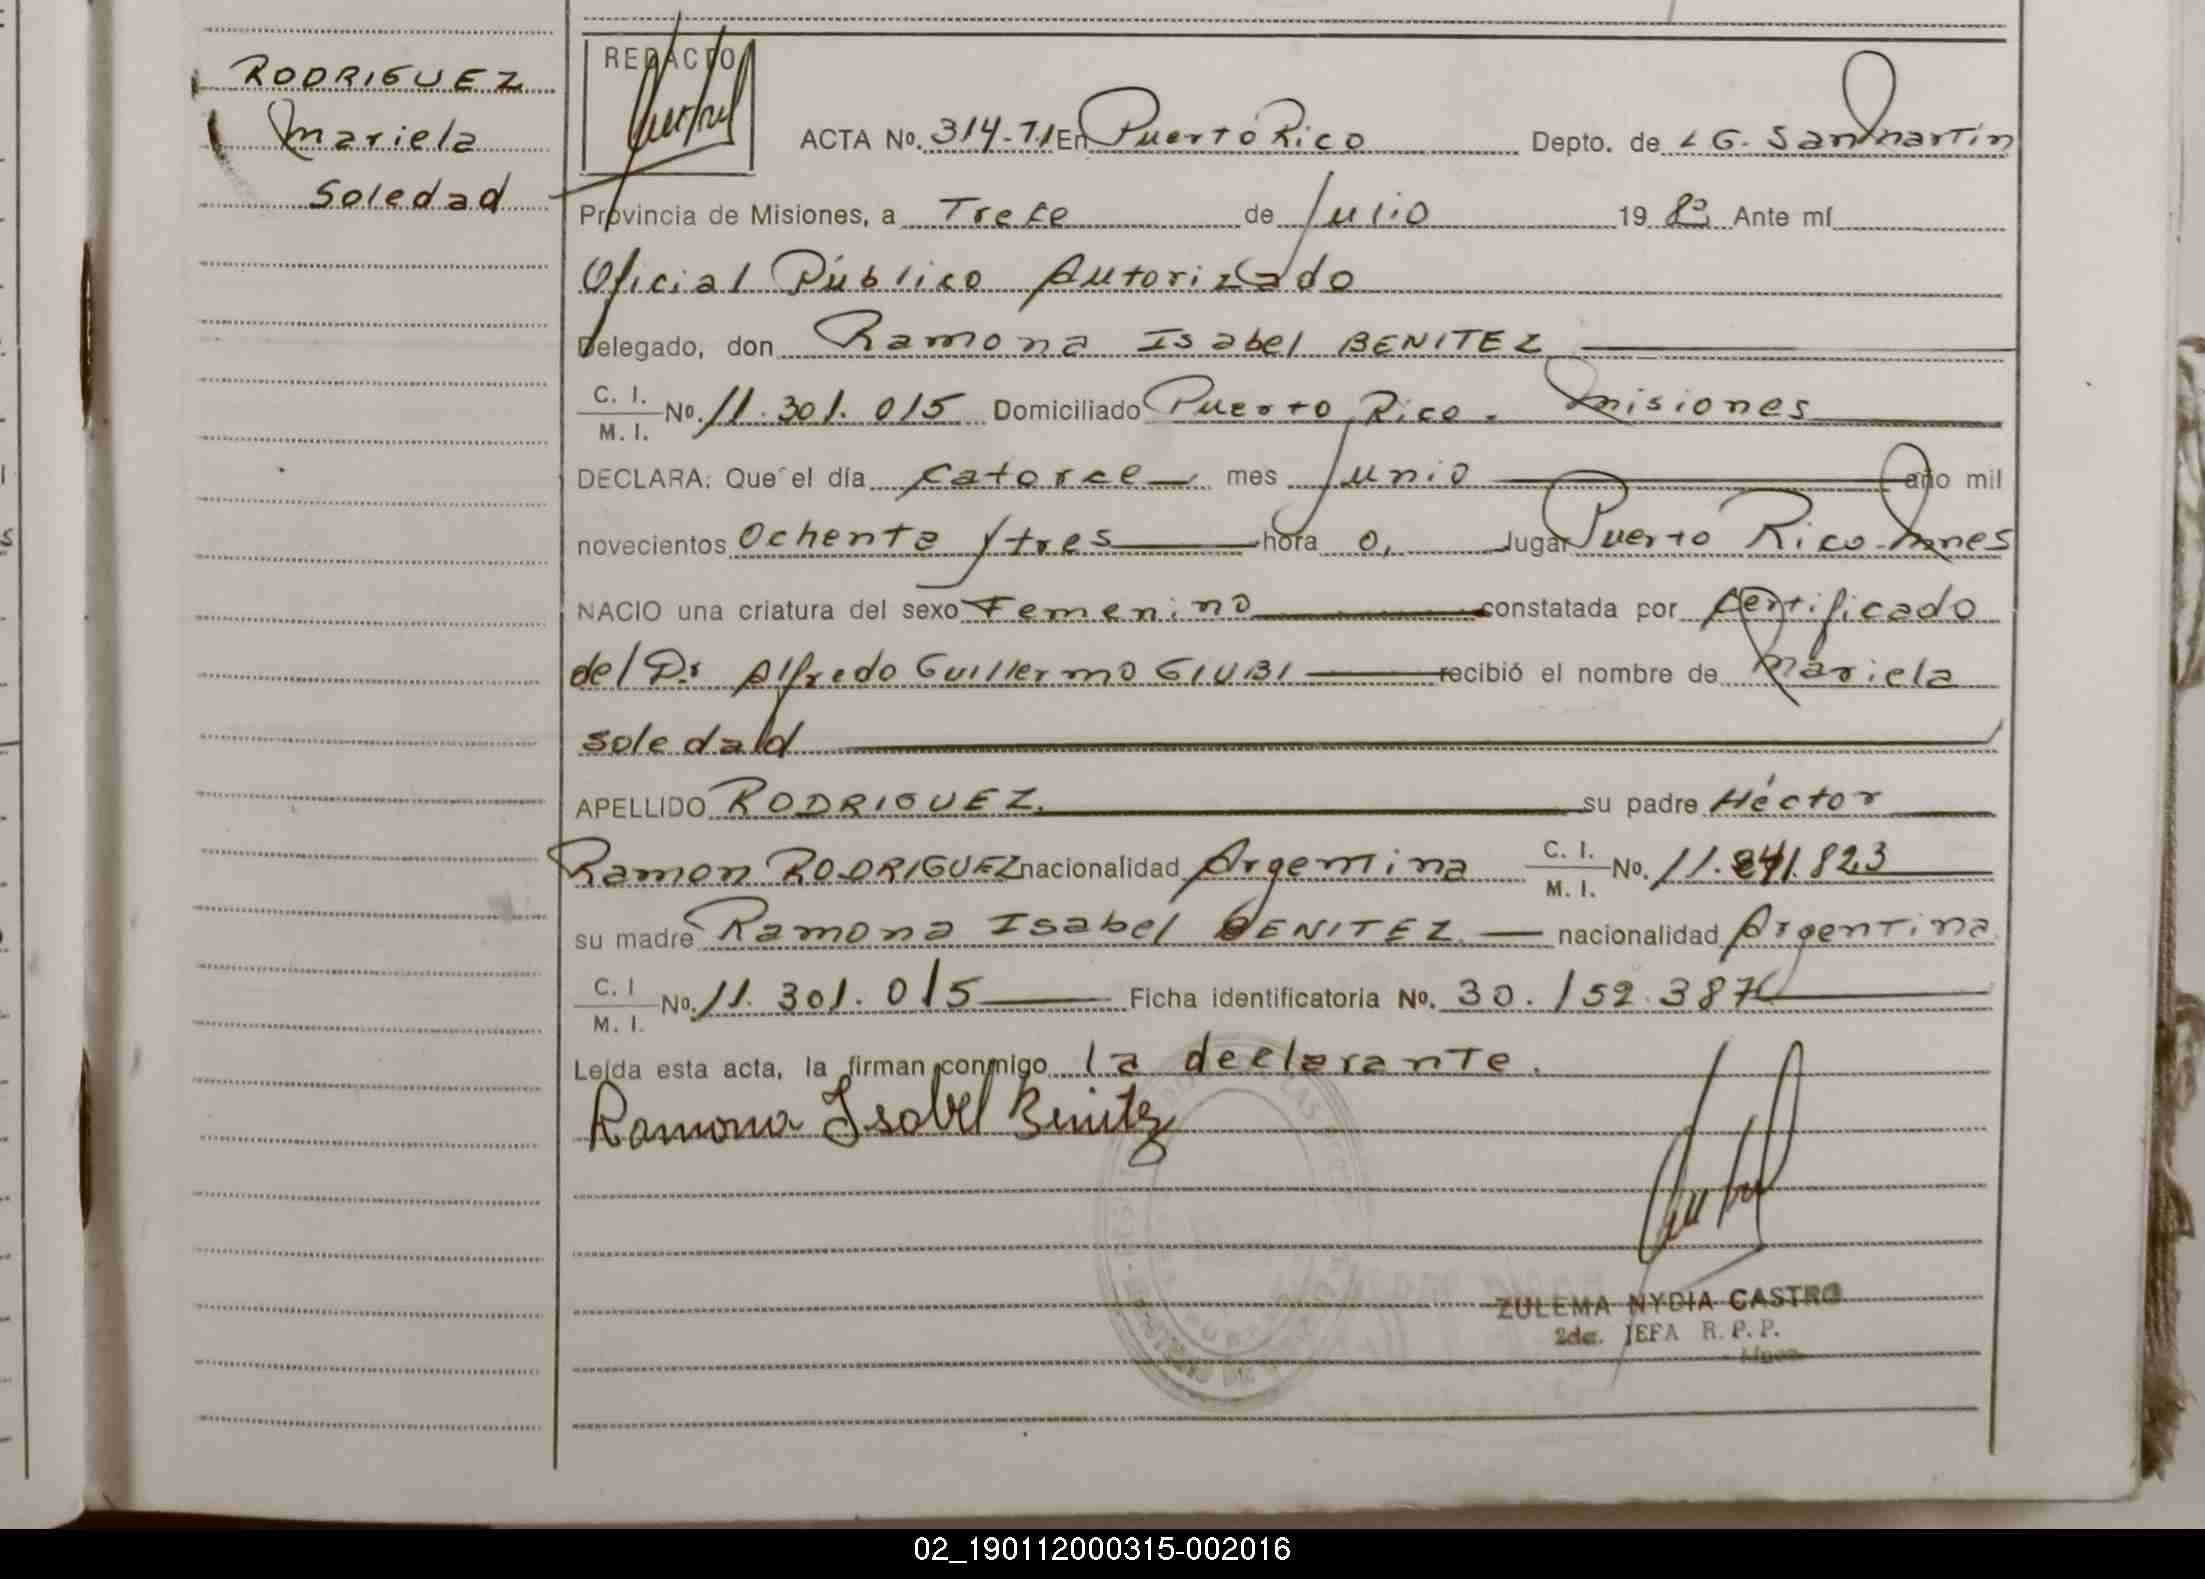 RODRIGUEZ
Mariela
Soledad
REDACTO
ACTA No. 314-T.I En Puerto Rico Depto. de L G. San Martín
Provincia de Misiones, a Trece de Julio 19 83 Ante mí
Oficial Público Autorizado
Delegado, don Ramona Isabel BENITEZ
C. I.
M. I. No. 11.301.015 Domiciliado Puerto Rico - Misiones
DECLARA: Que el día catorce mes Junio año mil
novecientos Ochenta y tres hora 0, lugar Puerto Rico-Mnes
NACIO una criatura del sexo Femenino constatada por certificado
del Dr Alfredo Guillermo GIUBI recibió el nombre de Mariela
Soledad
APELLIDO RODRIGUEZ. su padre Héctor
Ramon RODRIGUEZ nacionalidad Argentina C. I. M. I. No. 11.841.823
su madre Ramona Isabel BENITEZ. nacionalidad Argentina
C. I
M. I. No. 11.301.015 Ficha identificatoria No. 30.152.387
Leída esta acta, la firman conmigo la declarante.
Ramona Isabel Benitez
ZULEMA NYDIA CASTRO
2da. JEFA R. P. P.
02_190112000315-002016